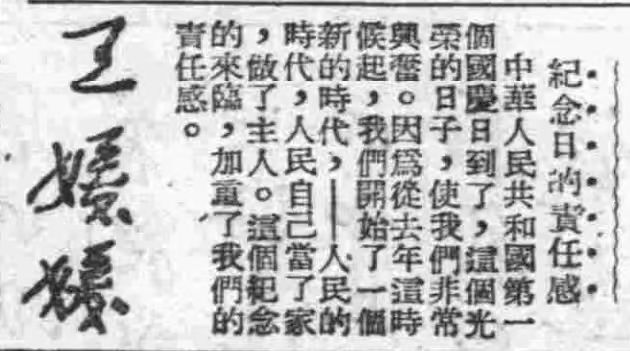 紀念日的責任感
中華人民共和國第一
個國慶日到了，這個光
榮的日子，使我們非常
興奮。因爲從去年這時
候起，我們開始了一個
新的時代，——人民的
時代，人民自己當了家
，做了主人。這個紀念
的來臨，加重了我們的
責任感。
王